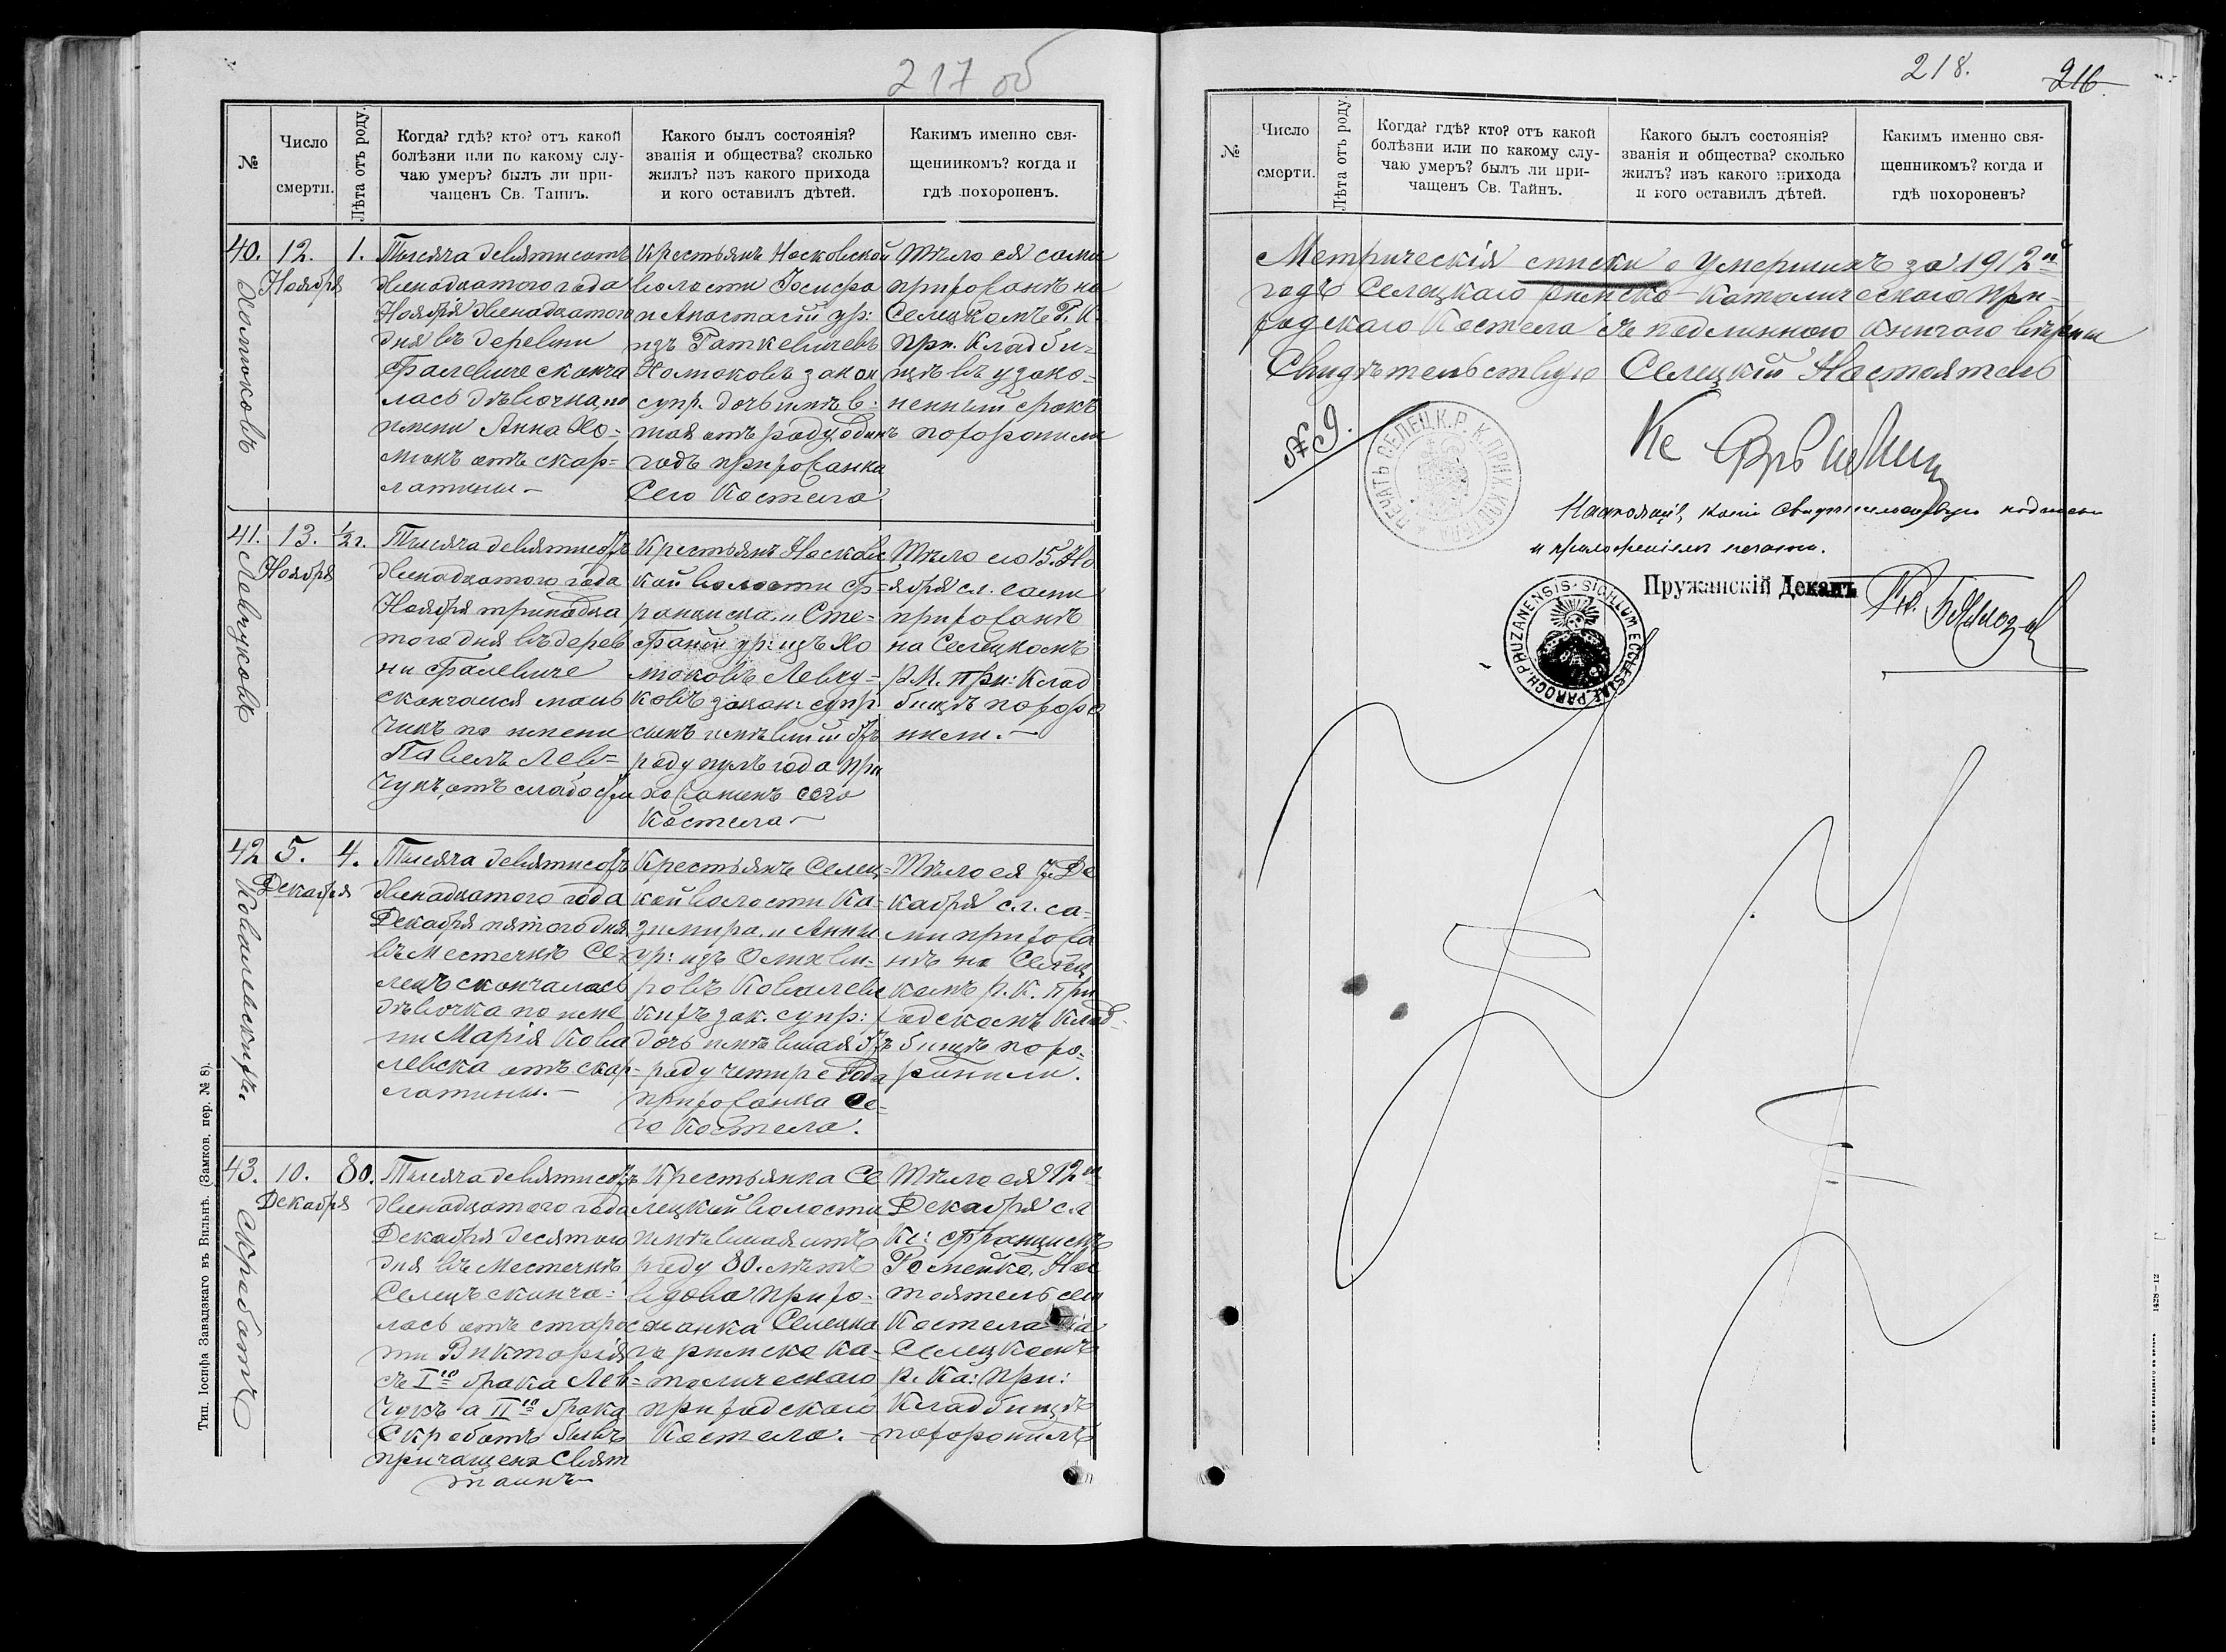 217 об
№
Число
смерти.
Лѣта отъ роду.
Когда? гдѣ? кто? отъ какой
болѣзни или по какому слу-
чаю умеръ? былъ ли при-
чащенъ Св. Таинъ.
Какого былъ состоянія?
званія и общества? сколько
жилъ? изъ какого прихода
и кого оставилъ дѣтей.
Какимъ именно свя-
щенникомъ? когда и
гдѣ похороненъ.
40.
Хомюковъ
12.
Ноября
1.
Тысяча девятисотъ
двенадцатого года
Ноября двенадцатого
дня въ деревни
Фалевиче сконча
лась дѣвочка, по
имени Анна Хо-
мюкъ отъ скар-
латины -
Крестьянъ Носковской
волости Іосифа
и Анастасіи ур:
изъ Раткевичевъ
Хомюковъ закон
супр. дочь имѣв:
шая отъ роду одинъ
годъ прихожанка
Сего Костела
Тѣло ея сами
прихожанѣ на
Селецкомъ Р. К.
при. кладби-
щѣ въ узако-
ненный срокъ
похоронили
41.
Левчуковъ
13.
Ноября
½ г.
Тысяча девятисотъ
двенадцатого года
Ноября тринадца
того дня въ дерев
ни Фалевиче
скончался маль
чикъ по имени
Павелъ Лев-
чукъ, отъ слабости
Крестьянъ Носковс
кой волости Ф-
ранциска и Сте-
фаніи ур: изъ Хо
мюковъ Левчу-
ковъ закон: супр.
сынъ имѣвшій отъ
роду полъ года при
хожанинъ сего
Костела -
Тѣло его 15. Но
ября с.г. сами
прихожанѣ
на Селецкомъ
Р. К. При: Клад
бищѣ похоро
нили. -
42
Ковалевскихъ.
5.
Декабря
4.
Тысяча девятисотъ
двенадцатого года
Декабря пятого дня
въ Местечкѣ Се-
лецъ скончалась
дѣвочка по име
ни Марія Кова
левска отъ скар-
латины. -
Крестьянъ Селец-
кой волости Ка-
зимира и Анны
ур: изъ
Ковалевс
кихъ зак. супр:
дочь имѣвшая отъ
роду четыре года
прихожанка Се-
го Костела.
Тѣло ея 7. Де
кабря с.г. са-
ми прихожа
нѣ на Селец
комъ Р. К. при
ходскомъ Клад-
бищѣ похо-
ронили.
43.
Скработъ
10.
Декабря
80.
Тысяча девятисотъ
двенадцатого года
Декабря десятого
дня въ Местечкѣ
Селецъ сконча:
лась отъ старос
ти Викторія
съ Iго брака Лев-
чукъ а IIго брака
Скработъ бывъ
причащена Свят
таинъ -
Крестьянка Се
лецкой волости
имѣвшая отъ
роду 80. лѣтъ
вдова прихо-
жанка Селецка
го римско ка-
толическаго
приходскаго
Костела. -
Тѣло ея 12го
Декабря с.г
Кс: Францискъ
Ромейко. Нас
тоятель сего
Костела на
Селецкомъ
Р. Ка: при:
Кладбищѣ
похоронилъ
Тип. Іосифа Завадзкаго въ Вильнѣ. (Замков. пер. № 8).
218.
216
№
Число
смерти.
Лѣта отъ роду.
Когда? гдѣ? кто? отъ какой
болѣзни или по какому слу-
чаю умеръ? былъ ли при-
чащенъ Св. Тайнъ.
Какого былъ состоянія?
званія и общества? сколько
жилъ? изъ какого прихода
и кого оставилъ дѣтей.
Какимъ именно свя-
щенникомъ? когда и
гдѣ похороненъ?
Метрическія списки о Умершихъ за 1912й
годъ Селецкаго Римско-Католическаго При-
ходскаго Костела съ подлинною книгою вѣрны
Свидѣтельствую Селецкій Настоятель
№ 9.
ПЕЧАТЬ СЕЛЕЦ. К. Р. К. ПРИХ. КОСТЕЛА
Кс
копіи свидѣтельствую подписью
и приложеніемъ печати.
SIGILLUM ECCLESIAE PAROCH. PRUZANENSIS
Пружанскій Деканъ